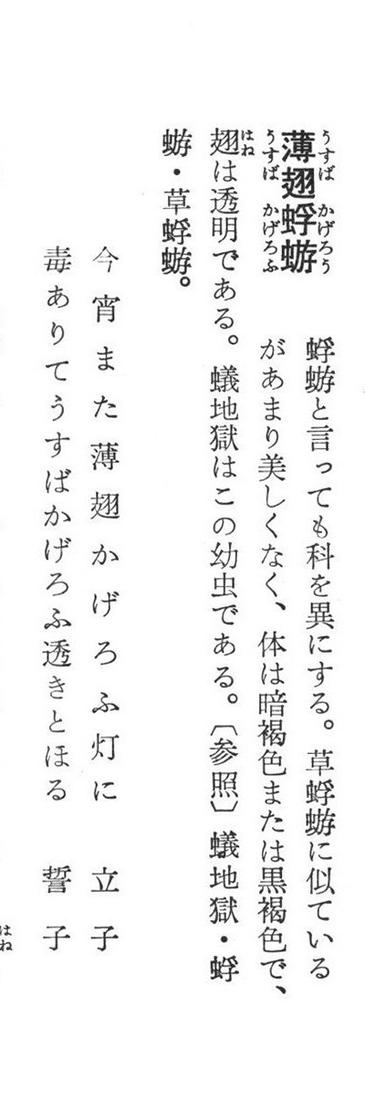 うすば かげろう
薄翅蜉蝣
うすば かげろふ
蜉蝣と言っても科を異にする。草蜉蝣に似ている
があまり美しくなく、体は暗褐色または黒褐色で、
はね
翅は透明である。蟻地獄はこの幼虫である。〔参照〕蟻地獄・蜉
蝣・草蜉蝣。
今宵また薄翅かげろふ灯に 立子
毒ありてうすばかげろふ透きとほる 誓子
はね